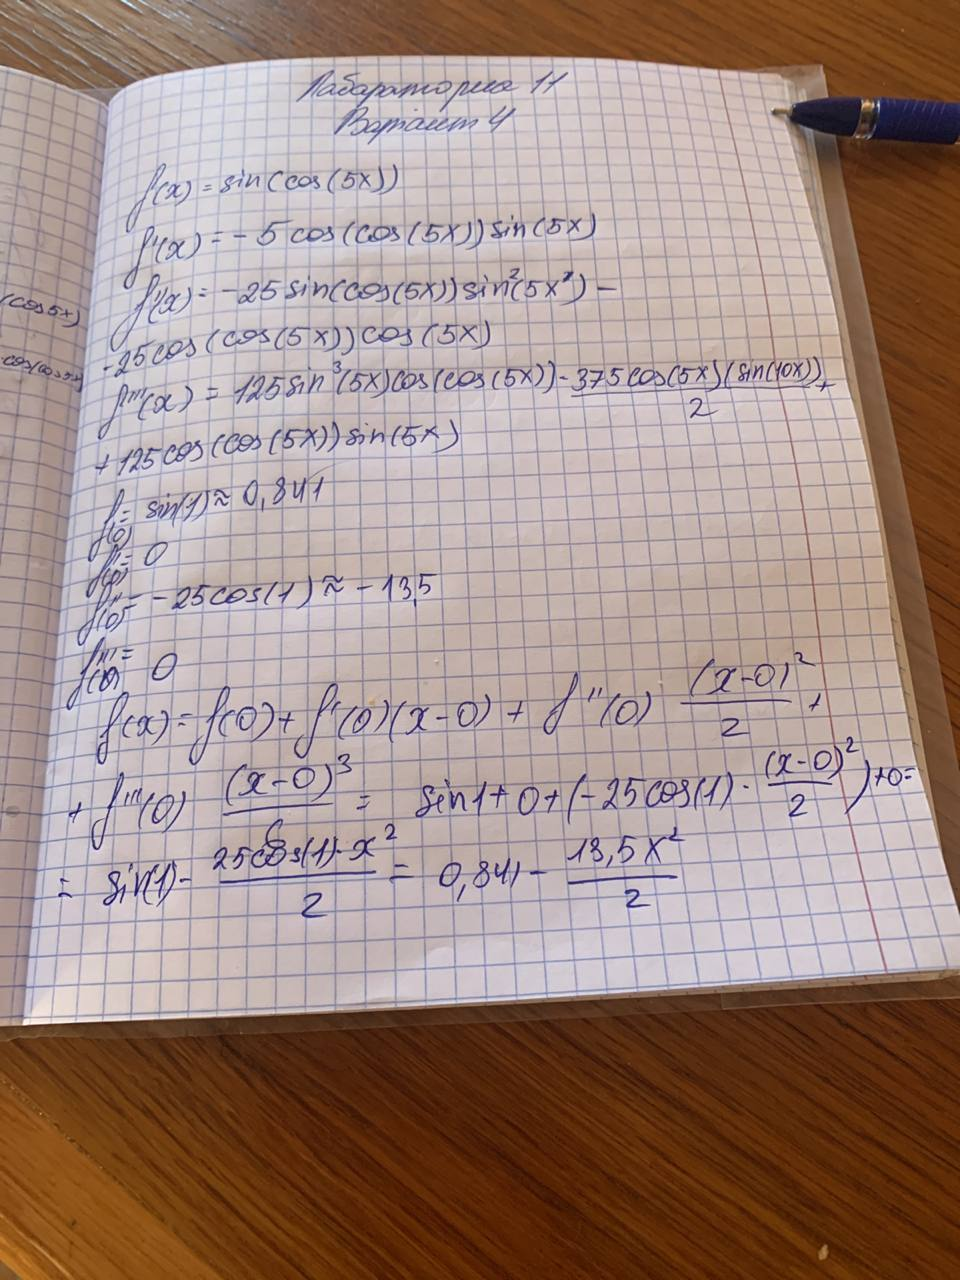 Лабараторна 11
Варіант 4
f(x) = sin(cos(5x))
f'(x) = - 5 cos(cos(5x)) sin(5x)
f''(x) = -25 sin(cos(5x)) sin²(5x²) -
- 25 cos(cos(5x)) cos(5x)
f'''(x) = 125 sin³(5x) cos(cos(5x)) - 375 cos(5x)(sin(10x)) / 2 +
+ 125 cos(cos(5x)) sin(5x)
f(0) = sin(1) ≈ 0,841
f'(0) = 0
f''(0) = - 25 cos(1) ≈ - 13,5
f'''(0) = 0
f(x) = f(0) + f'(0)(x-0) + f''(0) (x-0)² / 2 +
+ f'''(0) (x-0)³ / 6 = sin1 + 0 + (-25cos(1) · (x-0)² / 2) + 0 =
= sin(1) - 25cos(1)·x² / 2 = 0,841 - 13,5x² / 2
(cos5x)
cos(cos5x)